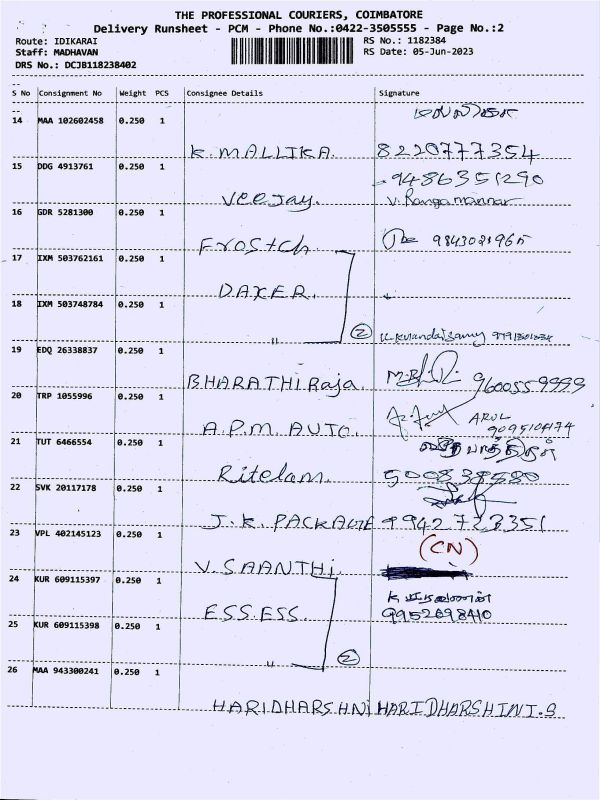 THE PROFESSIONAL COURIERS, COIMBATORE
Delivery Runsheet - PCM - Phone No.:0422-3505555 - Page No.:2
Route: IDIKARAI RS No.: 1182384
Staff: MADHAVAN RS Date: 05-Jun-2023
DRS No.: DCJB118238402
S No Consignment No Weight PCS Consignee Details Signature
14 MAA 102602458 0.250 1
K. MALLIKA 8220777354
15 DDG 4913761 0.250 1 9486351290
Veejay. V. Rangamannar
16 GDR 5281300 0.250 1
Frostch 9843021965
17 IXM 503762161 0.250 1
DAXER.
18 IXM 503748784 0.250 1
" 2 K. Kunandaisamy
19 EDQ 26338837 0.250 1
BHARATHI Raja 9600559999
20 TRP 1055996 0.250 1
A.P.M. AUTO. ARUL
9095104174
21 TUT 6466554 0.250 1
Ritelam
22 SVK 20117178 0.250 1
J.K. PACKAGE 9942723351
23 VPL 402145123 0.250 1 (CN)
V. SAANTHI.
24 KUR 609115397 0.250 1
ESS.ESS. 9952698410
25 KUR 609115398 0.250 1
" 2
26 MAA 943300241 0.250 1
HARIDHARSHNI HARIDHARSHINI.S